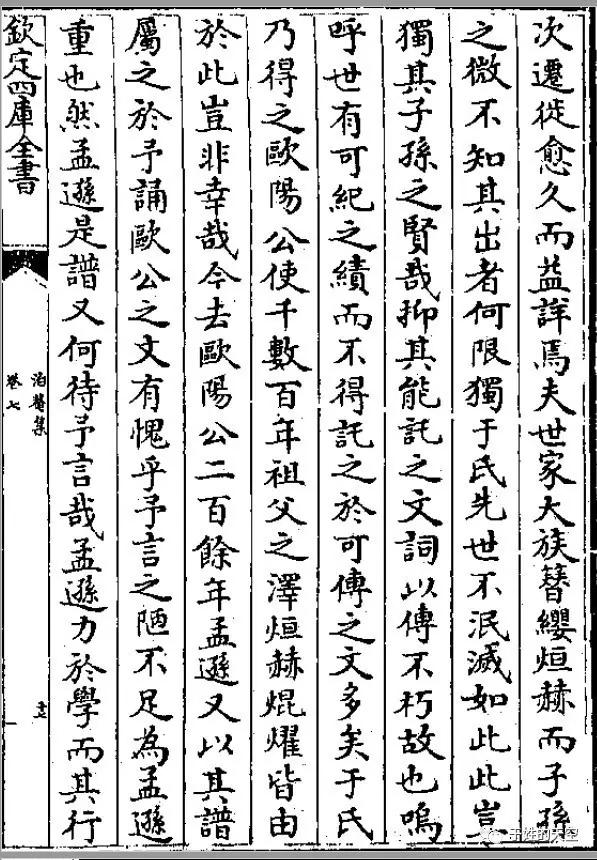 次遷徙愈久而益詳焉夫世家大族簪纓烜赫而子孫
之微不知其出者何限獨于氏先世不泯滅如此此豈
獨其子孫之賢哉抑其能託之文詞以傳不朽故也嗚
呼世有可紀之績而不得託之於可傳之文多矣于氏
乃得之歐陽公使千數百年祖父之澤烜赫焜燿皆由
於此豈非幸哉今去歐陽公二百餘年孟遜又以其譜
屬之於予誦歐公之文有愧乎予言之陋不足為孟遜
重也然孟遜是譜又何待予言哉孟遜力於學而其行
欽定四庫全書
泊菴集
卷七
十七
于姓的天空